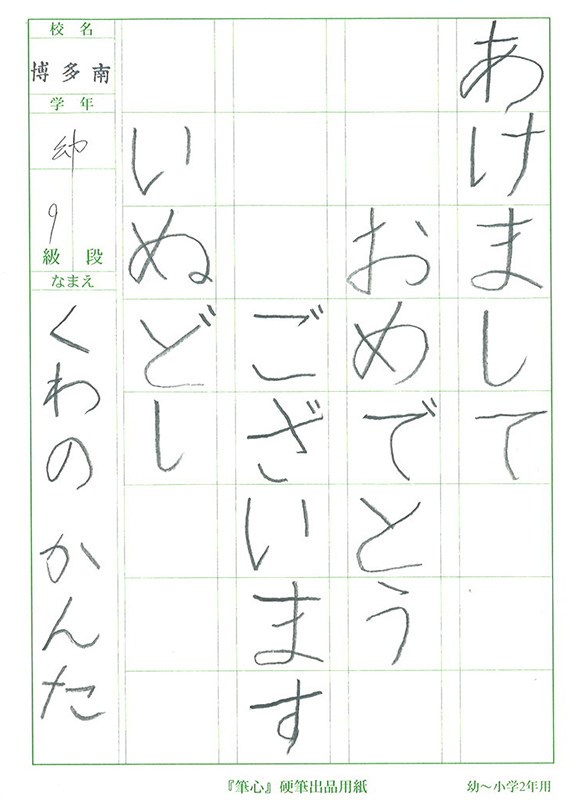 あけまして
おめでとう
ございます
いぬどし
校名
博多南
学年
幼
9
級 段
なまえ
くわの かんた
『筆心』硬筆出品用紙
幼～小学2年用